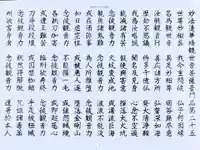 妙法蓮華経観世音菩薩普門品第二五
世尊妙相具 我今重問彼 佛子何因縁
名為観世音 具足妙相尊 偈答無盡意
汝聴観音行 善應諸方所 弘誓深如海
歴劫不思議 侍多千億佛 発大清浄願
我為汝略説 聞名及見身 心念不空過
能滅諸有苦 假使興害意 推落大火坑
念彼観音力 火坑変成池 或漂流巨海
龍魚諸鬼難 念彼観音力 波浪不能没
或在須弥峰 為人所推堕 念彼観音力
如日虚空住 或被悪人逐 堕落金剛山
念彼観音力 不能損一毛 或値怨賊繞
各執刀加害 念彼観音力 咸即起慈心
或遭王難苦 臨刑欲寿終 念彼観音力
刀尋段段壊 或囚禁枷鎖 手足被杻械
念彼観音力 釈然得解脱 呪詛諸毒薬
所欲害身者 念彼観音力 還著於本人